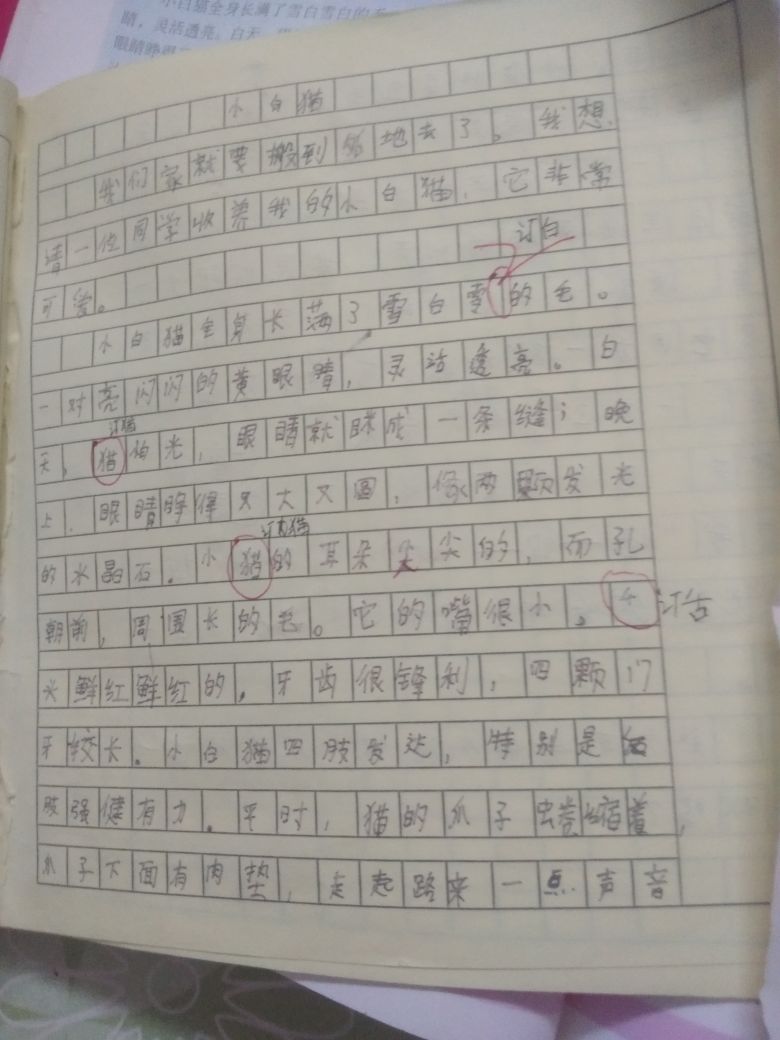 小白猫全身长满了雪白雪白的
睛，灵活透亮。白天，
眼睛睁得
小白猫
我们家就要搬到外地去了。我想
请一位同学收养我的小白猫，它非常
订白
可爱。
小白猫全身长满了雪白雪的毛。
一对亮闪闪的黄眼睛，灵活透亮。白
订猫
天，猫怕光，眼睛就眯成一条缝；晚
上，眼睛睁得又大又圆，像两颗发光
订白猫
的水晶石。小猫的耳朵尖尖的，面孔
朝前，周围长的毛。它的嘴很小。舌
订舌
头鲜红鲜红的，牙齿很锋利，四颗门
牙较长。小白猫四肢发达，特别是后
肢强健有力。平时，猫的爪子蜷缩着，
爪子下面有肉垫，走起路来一点声音